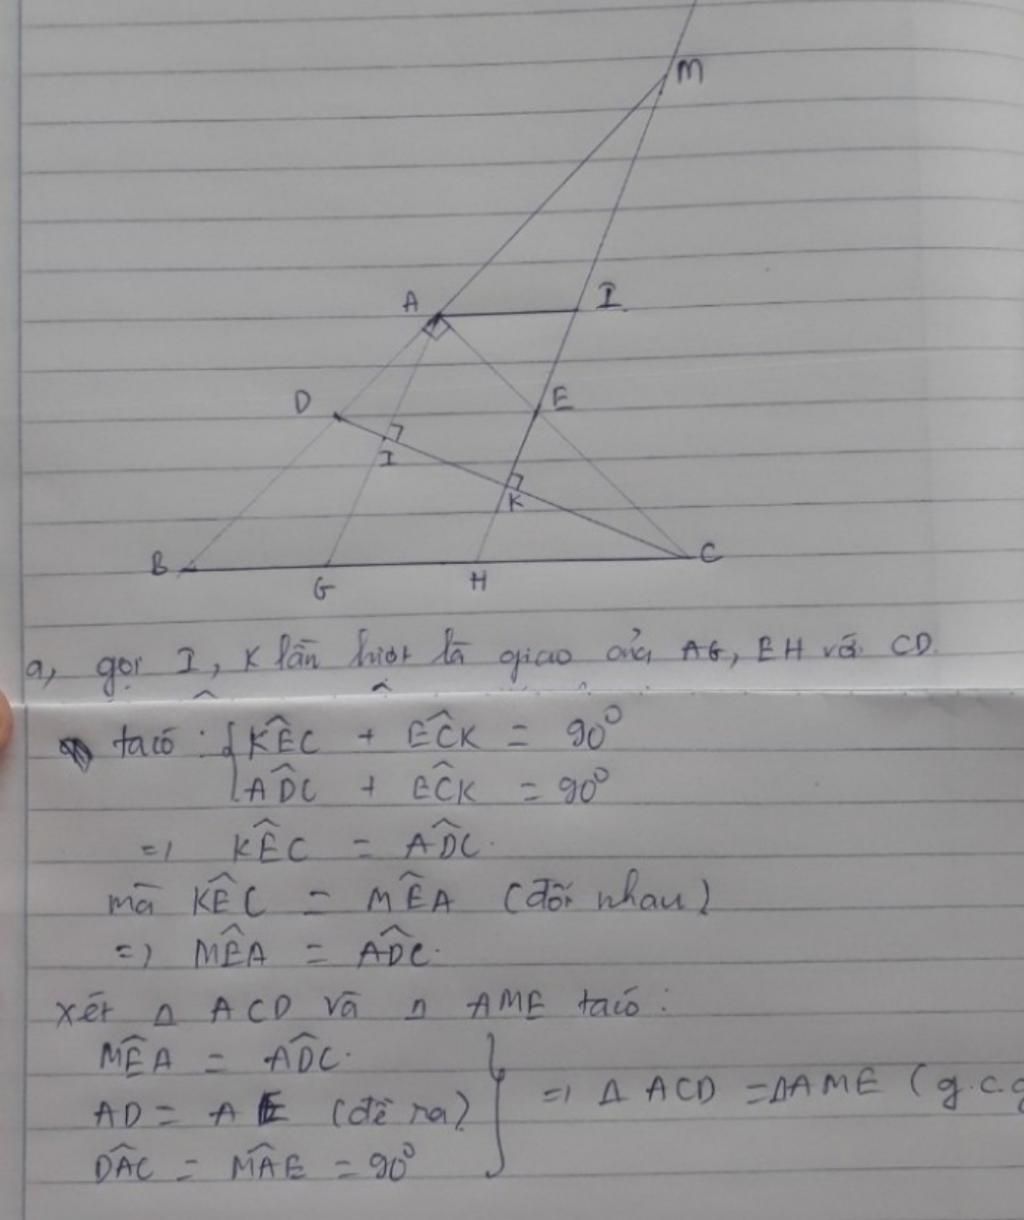 M
A
I
D
E
I
K
B
G
H
C
a, gọi I, K lần lượt là giao của AG, EH với CD.
ta có : { K̂EC + ECK̂ = 90°
ADC + ECK = 90°
=> KEC = ADC.
mà KEC = MEA (đối nhau)
=> MEA = ADC.
xét Δ ACD và Δ AME ta có :
MEA = ADC.
AD = AE (đề ra) => Δ ACD = Δ AME (g.c.g
DAC = MAE = 90°